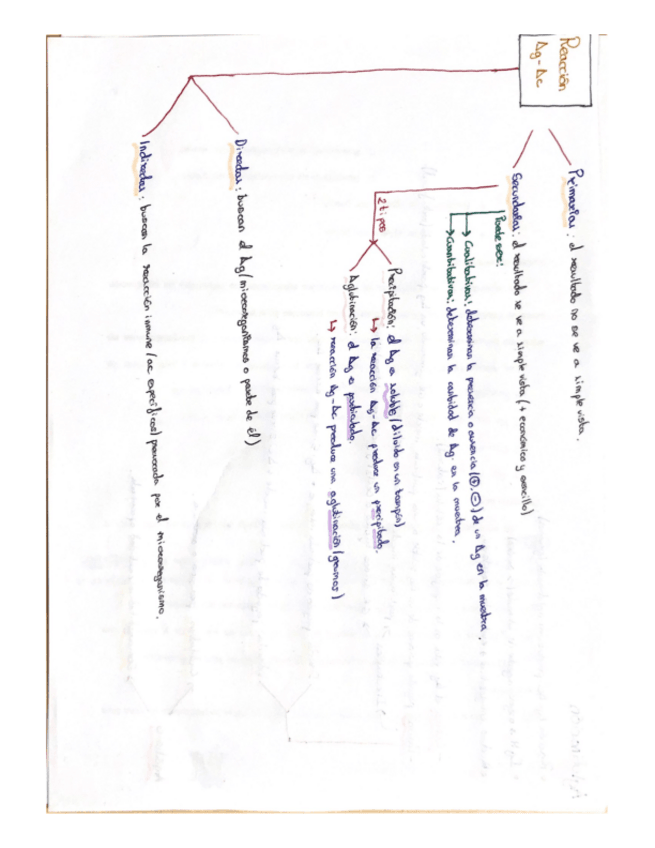 Reacción
Ag-Ac
Primarias: el resultado no se ve a simple vista.
Secundarias: el resultado se ve a simple vista (+ económico y sencillo)
Puede ser:
↳ Cualitativas: determinan la presencia o ausencia (⊕, ⊖) de un Ag en la muestra.
↳ Cuantitativas: determinan la cantidad de Ag. en la muestra.
2 tipos
Precipitación: el Ag es soluble (diluido en un tampón)
↳ la reacción Ag-Ac produce un precipitado.
Aglutinación: el Ag es particulado.
↳ reacción Ag-Ac produce una aglutinación (grumos)
Directas: buscan el Ag (microorganismos o parte de él)
Indirectas: buscan la reacción inmune (ac específicos) provocada por el microorganismo.